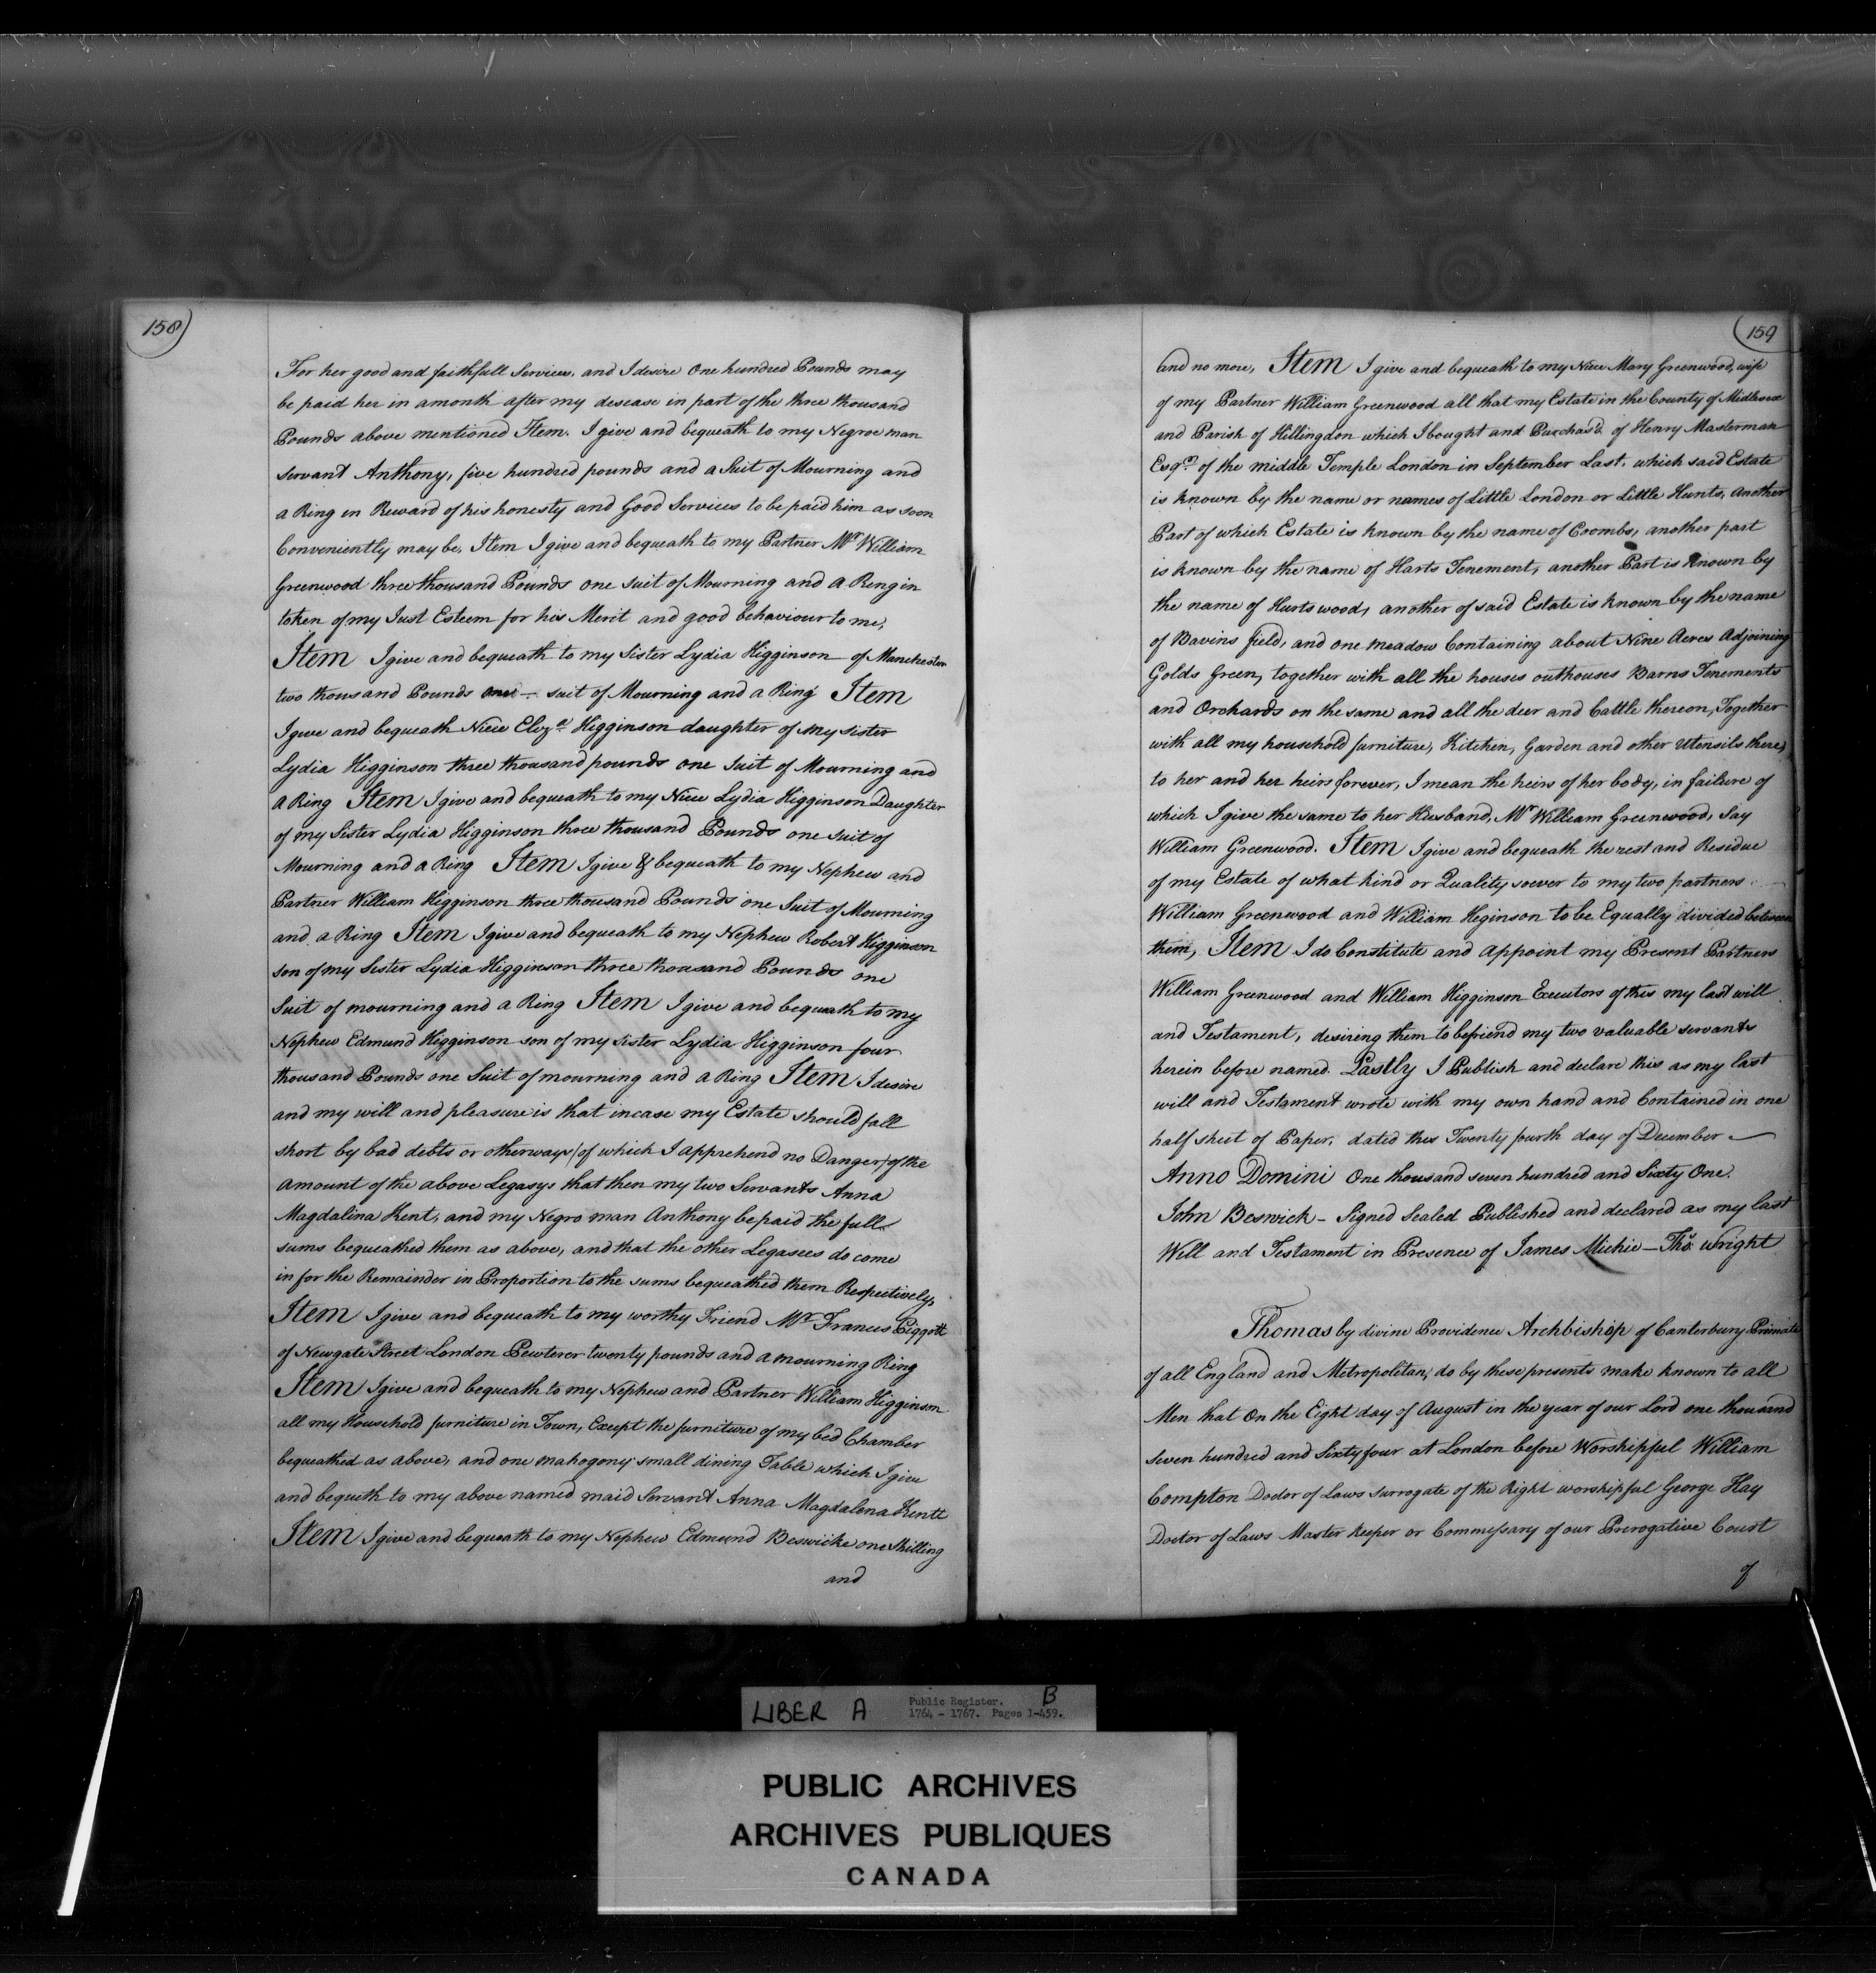 158
For her good and faithfull Services, and I desire One hundred Pounds may
be paid her in a month after my desease in part of the three thousand
Pounds above mentioned Item. I give and bequeath to my Negroe man
servant Anthony, five hundred pounds and a Suit of Mourning and
a Ring in Reward of his honesty and Good Services to be paid him as soon
Conveniently may be, Item I give and bequeath to my Partner Mr William
Greenwood three thousand Pounds one suit of Mourning and a Ring in
token of my Just Esteem for his Merit and good behaviour to me,
Item I give and bequeath to my Sister Lydia Higginson of Manchester
two thousand Pounds one — suit of Mourning and a Ring Item
I give and bequeath Niece Eliza Higginson daughter of my sister
Lydia Higginson three thousand pounds one Suit of Mourning and
a Ring Item I give and bequeath to my Niece Lydia Higginson Daughter
of my Sister Lydia Higginson three thousand Pounds one suit of
Mourning and a Ring Item I give & bequeath to my Nephew and
Partner William Higginson three thousand Pounds one Suit of Mourning
and a Ring Item I give and bequeath to my Nephew Robert Higginson
son of my Sister Lydia Higginson three thousand Pounds one
Suit of mourning and a Ring Item I give and bequeath to my
Nephew Edmund Higginson son of my sister Lydia Higginson four
thousand Pounds one Suit of mourning and a Ring Item I desire
and my will and pleasure is that incase my Estate should fall
short by bad debts or otherways (of which I apprehend no Danger) of the
amount of the above Legasys that then my two Servants Anna
Magdalina Kent, and my Negro man Anthony be paid the full
sums bequeathed them as above, and that the other Legasees do come
in for the Remainder in Proportion to the sums bequeathed them Respectively,
Item I give and bequeath to my worthy Friend Mr Francis Piggott
of Newgate Street London Pewterer twenty pounds and a mourning Ring
Item I give and bequeath to my Nephew and Partner William Higginson
all my Household furniture in Town, Except the furniture of my bed Chamber
bequeathed as above, and one mahogony small dining Table which I give
and bequeth to my above named maid Servant Anna Magdalena Kentt
Item I give and bequeath to my Nephew Edmund Beswicke one Shilling
and
159
and no more, Item I give and bequeath to my Niece Mary Greenwood, wife
of my Partner William Greenwood all that my Estate in the County of Midlesex
and Parish of Hillingdon which I bought and Purchas'd of Henry Masterman
Esqr. of the middle Temple London in September Last, which said Estate
is known by the name or names of Little London or Little Hunts, another
Part of which Estate is known by the name of Coombs, another part
is known by the name of Harts Tenement, another Part is known by
the name of Hurts wood, another of said Estate is known by the name
of Bavins field, and one meadow Containing about Nine Acres Adjoining
Golds Green, together with all the houses outhouses Barns Tenements
and Orchards on the same and all the deer and Cattle thereon, Together
with all my household furniture, Kitchen, Garden and other Utensils there,
to her and her heirs forever, I mean the heirs of her body, in failure of
which I give the same to her Husband, Mr William Greenwood, Say
William Greenwood. Item I give and bequeath the rest and Residue
of my Estate of what kind or Quality soever to my two partners
William Greenwood and William Heginson to be Equally divided between
them, Item I do Constitute and appoint my Present Partners
William Greenwood and William Higginson Executors of this my last will
and Testament, desireing them to befriend my two valuable servants
herein before named. Lastly I Publish and declare this as my last
will and Testament wrote with my own hand and Contained in one
half sheet of Paper, dated this Twenty fourth day of December —
Anno Domini One thousand seven hundred and Sixty One.
John Beswick - Signed Sealed Published and declared as my last
Will and Testament in Presence of James Michie — Thos. Wright
Thomas by divine Providence Archbishop of Canterbury Primate
of all England and Metropolitan, do by these presents make known to all
Men that On the Eight day of August in the year of our Lord one thousand
seven hundred and Sixty four at London before Worshipful William
Compton Doctor of Laws surrogate of the Right worshipful George Hay
Doctor of Laws Master Keeper or Commissary of our Prerogative Court
of
LIBER A
Public Register. B
1764 - 1767. Pages 1-459.
PUBLIC ARCHIVES
ARCHIVES PUBLIQUES
CANADA